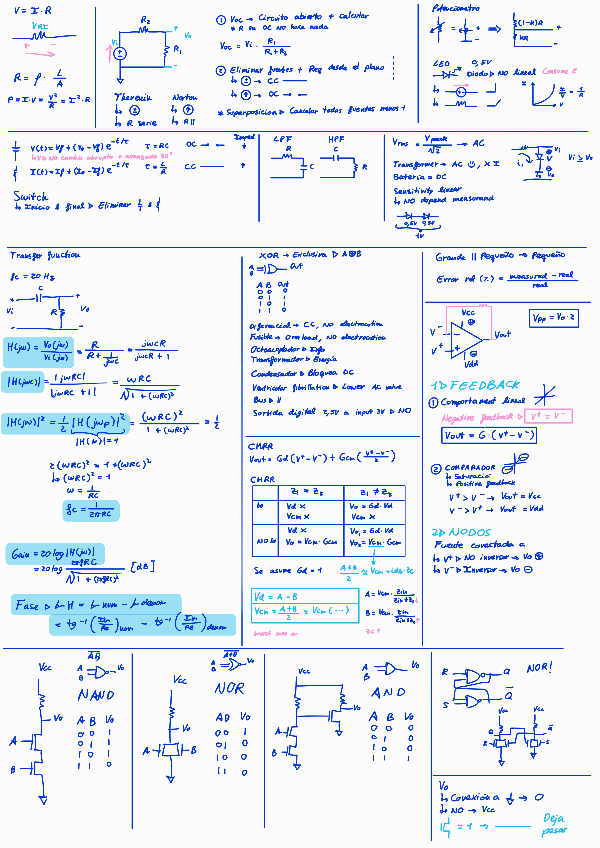 V = I · R
R = ρ · L/A
P = I·V = V²/R = I²·R
R₂
Vo
Vi
R₁
Thevenin
Norton
↳ R serie
↳ R ||
① Voc → Circuito abierto + calcular
Voc = Vi · R₁/(R₁+R₂)
② Eliminar fuentes + Req desde el plano
CC
OC
* Superposición ▷ Calcular todas fuentes menos 1
Potenciómetro
(1-k)R
kR
LED
0,5V
Diodo ▷ NO lineal
Consume E
V(t) = Vf + (Vo - Vf) e^(-t/τ)
τ = RC
OC
I(t) = If + (Io - If) e^(-t/τ)
τ = L/R
CC
Switch
↳ Inicio & final ▷ Eliminar
LPF
R
C
HPF
C
R
Vrms = Vpeak/√2 → AC
Transformer → AC
Bateria = DC
Sensitivity linear
↳ NO depend measurand
0,5V
0,5V
1V
Vi ≥ Vo
Transfer function
fc = 20 Hz
Vi
C
R
Vo
H(jω) = Vo(jω)/Vi(jω) = R/(R + 1/jωC) = jωCR/(jωCR + 1)
|H(jω)| = |jωRC|/|jωRC + 1| = ωRC/√(1 + (ωRC)²)
|H(jω)|² = 1/2 |H(jωp)|² = (ωRC)²/(1 + (ωRC)²) = 1/2
|H(jω)| = 1
2(ωRC)² = 1 + (ωRC)²
↳ (ωRC)² = 1
ω = 1/RC
fc = 1/2πRC
Gain = 20 log |H(jω)|
= 20 log ωRC/√(1 + (ωRC)²) [dB]
Fase ▷ ∠H = ∠ num - ∠ denom
= tg⁻¹ (Im/Re)num - tg⁻¹ (Im/Re)denom
XOR → Exclusiva ▷ A⊕B
A
B
Out
A B Out
0 0 0
0 1 1
1 0 1
1 1 0
Diferencial → CC, NO electrocution
Fusible → Overload, NO electrocution
Octoacoplador ▷ Info
Transformador ▷ Energía
Condensador ▷ Bloquea DC
Ventricular fibrillation ▷ Lower AC value
Bus ▷ 11
Sortida digital 2,5V a input 3V ▷ NO
CMRR
Vout = Gd (V⁺ - V⁻) + Gcm (V⁺-V⁻/2)
CMRR
Z₁ = Z₂
Z₁ ≠ Z₂
Vd X
Vcm X
Vo = Gd · Vd
Vcm X
NO ∞
Vd X
Vo = Vcm · Gcm
Vo₁ = Gd · Vd
Vo₂ = Vcm · Gcm
Se asume Gd = 1
Vd = A - B
Vcm = A+B/2 ≈ Vcm (···)
Worst case
Grande || Pequeño → Pequeño
Error rel (%) = measured - real/real
Vcc
V⁻
V⁺
Vout
Vdd
Vpp = Vo · 2
1▷ FEEDBACK
① Comportament lineal
Negative feedback ▷ V⁺ = V⁻
Vout = G (V⁺ - V⁻)
② COMPARADOR
↳ Saturació
↳ Positive feedback
V⁺ > V⁻ → Vout = Vcc
V⁻ > V⁺ → Vout = Vdd
2▷ NODOS
Fuente conectada a
↳ V⁺ ▷ NO inversor → Vo ⊕
↳ V⁻ ▷ Inversor → Vo ⊖
Vcc
Vo
A
B
A
B
Vo
NAND
A B Vo
0 0 1
0 1 1
1 0 1
1 1 0
Vcc
Vo
A
B
A+B
A
B
Vo
NOR
A B Vo
0 0 1
0 1 0
1 0 0
1 1 0
Vcc
Vo
A
B
A
B
Vo
AND
A B Vo
0 0 0
0 1 0
1 0 0
1 1 1
R
S
Q
Q̄
NOR!
Vcc
Vcc
Q
Q̄
R
S
Vo
↳ Conexión a → 0
↳ NO → Vcc
= 1 →
Deja pasar